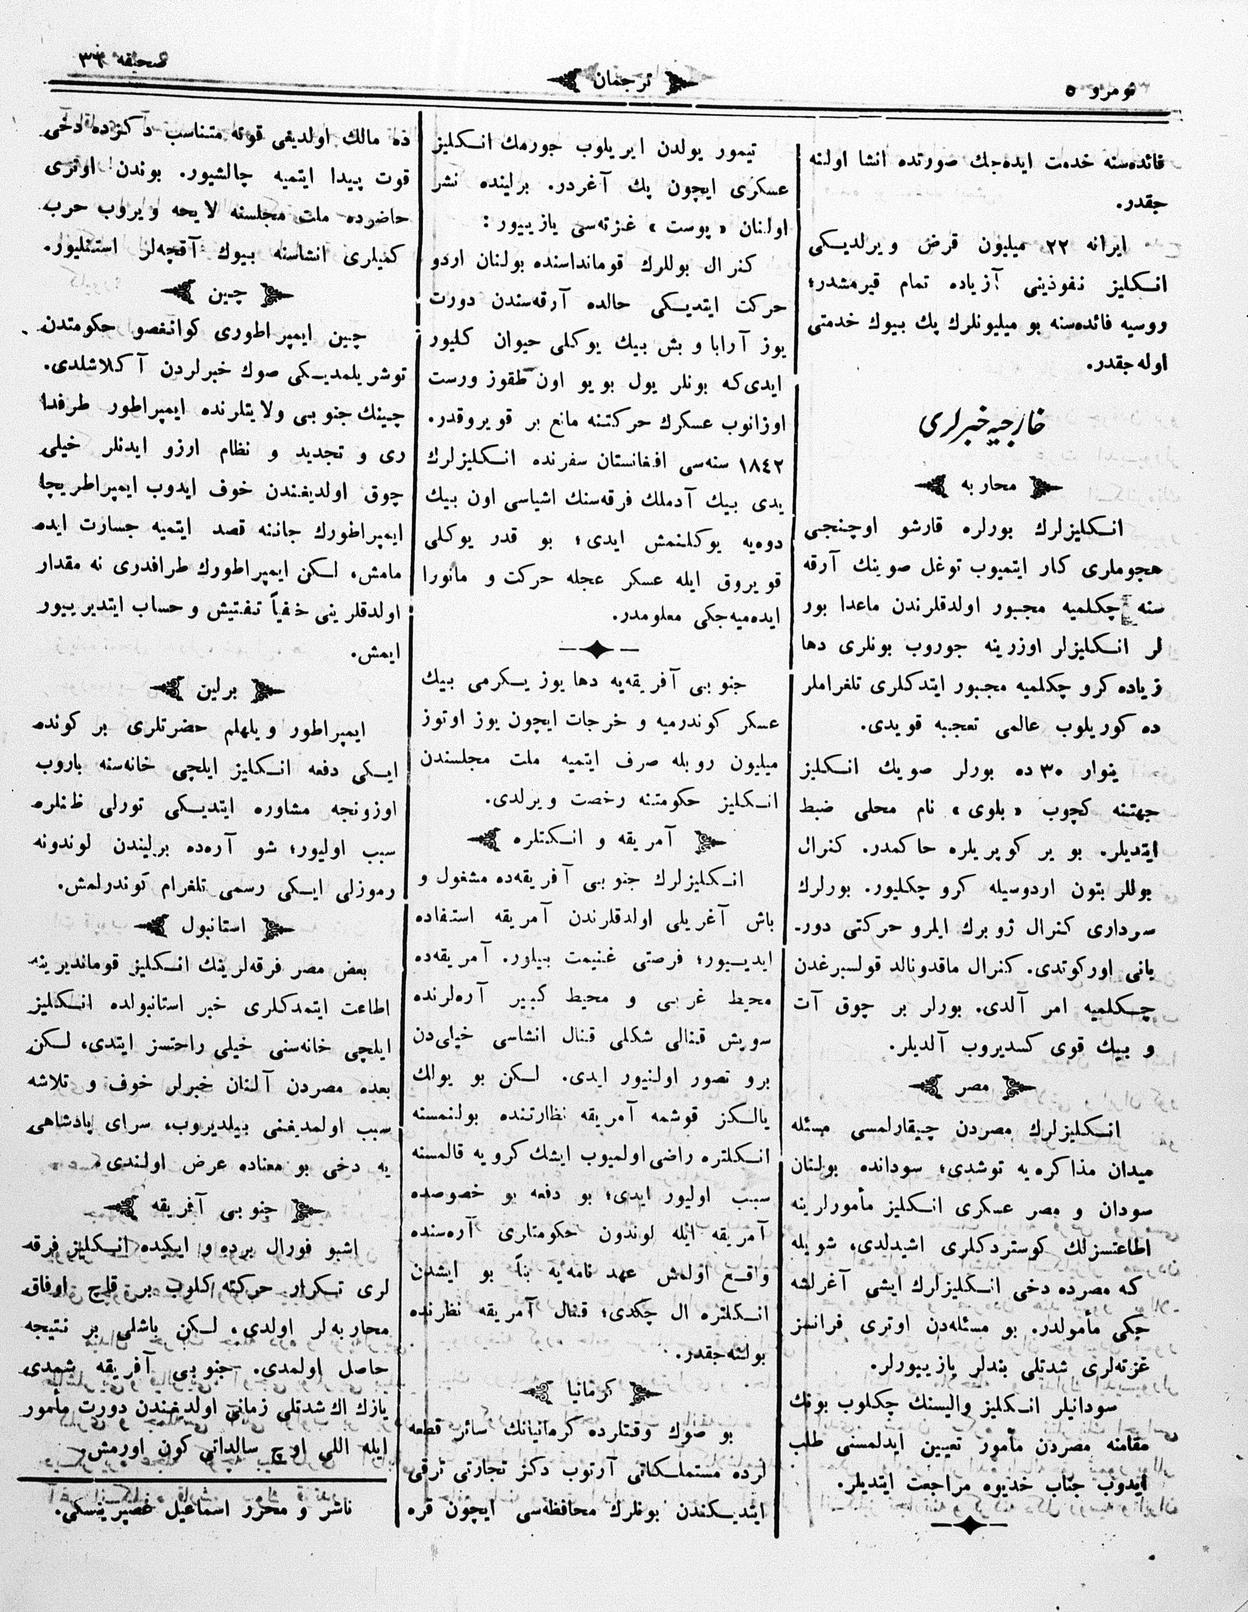 نومرو ٥
ترجمان
صحیفه ٣٦
فائده‌سنه خدمت ایده‌جك صورتده انشا اولنه
جقدر.
ایرانه ٢٢ میلیون قرض ویرلدیـكی
انـكلیز نفوذینی آزیاده تمام قیرمشدر؛
روسیه فائده‌سنه بو میلیونلرك پك بیوك خدمتی
اوله‌جقدر.
خارجیه خبرلری
محاربه
انـكلیزلرك بورلره قارشو اوچنجی
هجوملری كار ایتمیوب توغل صوینك آرقه
سنه چكلمیه مجبور اولدقلرندن ماعدا بور
لر انـكلیزلر اوزرینه جوروب بونلری دها
زیاده كرو چكلمیه مجبور ایتدكلری تلغراملر
ده كوریلوب عالمی تعجبه قویدی.
ینوار ٣٠ ده بورلر صویك انـكلیز
جهتنه كچوب «بلوی» نام محلی ضبط
ایتدیلر. بو یر كوپریلره حاكمدر. كنرال
بوللر بتون اردوسیله كرو چكلیور. بورلرك
سرداری كنرال ژوبرك ایلرو حركتی دور-
یانی اوركوتدی. كنرال ماقدونالد قولسبرغدن
چـكلمیه امر آلدی. بورلر بر چوق آت
و بیك قوی كسدیروب آلدیلر.
مصر
انـكلیزلرك مصردن چیقارلمسی مسئله
میدان مذاكره‌یه توشدی؛ سودانده بولنان
سودان و مصر عسكری انـكلیز مأمورلرینه
اطاعتسزلك كوستردكلری اشیدلدی، شویله
كه مصرده دخی انـكلیزلرك ایشی آغرلشه
جكی مأمولدر. بو مسئله‌دن اوتری فرانسز
غزته‌لری شدتلی بندلر یازییورلر.
سودانیلر انـكلیز والیسنك چكلوب بونك
مقامنه مصردن مأمور تعیین ایدلمسنی طلب
ایدوب جناب خدیوه مراجعت ایتدیلر.
تیمور یولدن ایریلوب جورمك انـكلیز
عسكری ایچون پك آغردر. برلینده نشر
اولنان «پوست» غزته‌سی یازییور:
كنرال بوللرك قومانداسنده بولنان اردو
حركت ایتدیـكی حالده آرقه‌سندن دورت
یوز آرابا و بش بیك یوكلی حیوان كلیور
ایدی‌كه بونلر یول بویو اون طقوز ورست
اوزانوب عسكرك حركتنه مانع بر قویروقدر.
١٨٤٢ سنه‌سی افغانستان سفرنده انـكلیزلرك
یدی بیك آدملك فرقه‌سنك اشیاسی اون بیك
دوه‌یه یوكلنمش ایدی؛ بو قدر یوكلی
قویروق ایله عسكر عجله حركت و مانورا
ایده‌میه‌جكی معلومدر.
جنوبی آفریقه‌یه دها یوز یـكرمی بیك
عسكر كوندرمیه و خرجات ایچون یوز اوتوز
میلیون روبله صرف ایتمیه ملت مجلسندن
انـكلیز حكومتنه رخصت ویرلدی.
آمریقه و انـكلتره
انـكلیزلرك جنوبی آفریقه‌ده مشغول و
باش آغریلی اولدقلرندن آمریقه استفاده
ایدیـیور؛ فرصتی غنیمت بیلور. آمریقه‌ده
محیط غربی و محیط كبیر آره‌لرنده
سویش قنالی شكلی قنال انشاسی خیلی‌دن
برو تصور اولنیور ایدی. لـكن بو یولك
یالـكز قوشمه آمریقه نظارتنده بولنمسنه
انـكلتره راضی اولمیوب ایشك كرویه قالمسنه
سبب اولیور ایدی؛ بو دفعه بو خصوصده
آمریقه ایله لوندون حكومتلری آره‌سنده
واقع اولمش عهدنامه‌یه بناً بو ایشدن
انـكلتره ال چكدی؛ قنال آمریقه نظرنده
بولنه‌جقدر.
كرمانیا
بو صوك وقتلرده كرمانیانك سائر قطعه
لرده مستملـكاتی آرتوب دكز تجارتی ترقی
ایتدیـكندن بونلرك محافظه‌سی ایچون قره
ده مالك اولدیغی قوته متناسب دكزده دخی
قوت پیدا ایتمیه چالشیور. بوندن اوتری
حاضرده ملت مجلسنه لایحه ویروب حرب
كمیلری انشاسنه بیوك آقچه‌لر استنلیور.
چین
چین ایمپراطوری كوانغصو حكومتدن
توشریلمدیـكی صوك خبرلردن آكلاشلدی.
چینك جنوبی ولایتلرنده ایمپراطور طرفدا
ری و تجدید و نظام ارزو ایدنلر خیلی
چوق اولدیغندن خوف ایدوب ایمپراطریچا
ایمپراطورك جاننه قصد ایتمیه جسارت ایده
مامش، لـكن ایمپراطورك طرافدری نه مقدار
اولدقلرینی خفیاً تفتیش و حساب ایتدیرییور
ایمش.
برلین
ایمپراطور ویلهلم حضرتلری بر كونده
ایـكی دفعه انـكلیز ایلچی خانه‌سنه باروب
اوزونجه مشاوره ایتدیـكی تورلی ظنلره
سبب اولیور؛ شو آره‌ده برلیندن لوندونه
رموزلی ایـكی رسمی تلغرام كوندرلمش.
استانبول
بعض مصر فرقه‌لرینك انـكلیز قوماندیرینه
اطاعت ایتمدكلری خبر استانبولده انـكلیز
ایلچی خانه‌سنی خیلی راحتسز ایتدی، لـكن
بعده مصردن آلنان خبرلر خوف و تلاشه
سبب اولمدیغنی بیلدیروب، سرای پادشاهی
یه دخی بو معناده عرض اولندی.
جنوبی آفریقه
اشبو فورال برده و ایكیده انـكلیز فرقه
لری تـكرار حركته كلوب بر قاچ اوفاق
محاربه‌لر اولدی. لـكن باشلی بر نتیجه
حاصل اولمدی. جنوبی آفریقه شمدی
یازك اك شدتلی زمانی اولدغندن دورت مأمور
ایله اللی اوچ سالداتی كون اورمش.
ناشر و محرر اسماعیل غصپرینسكی.